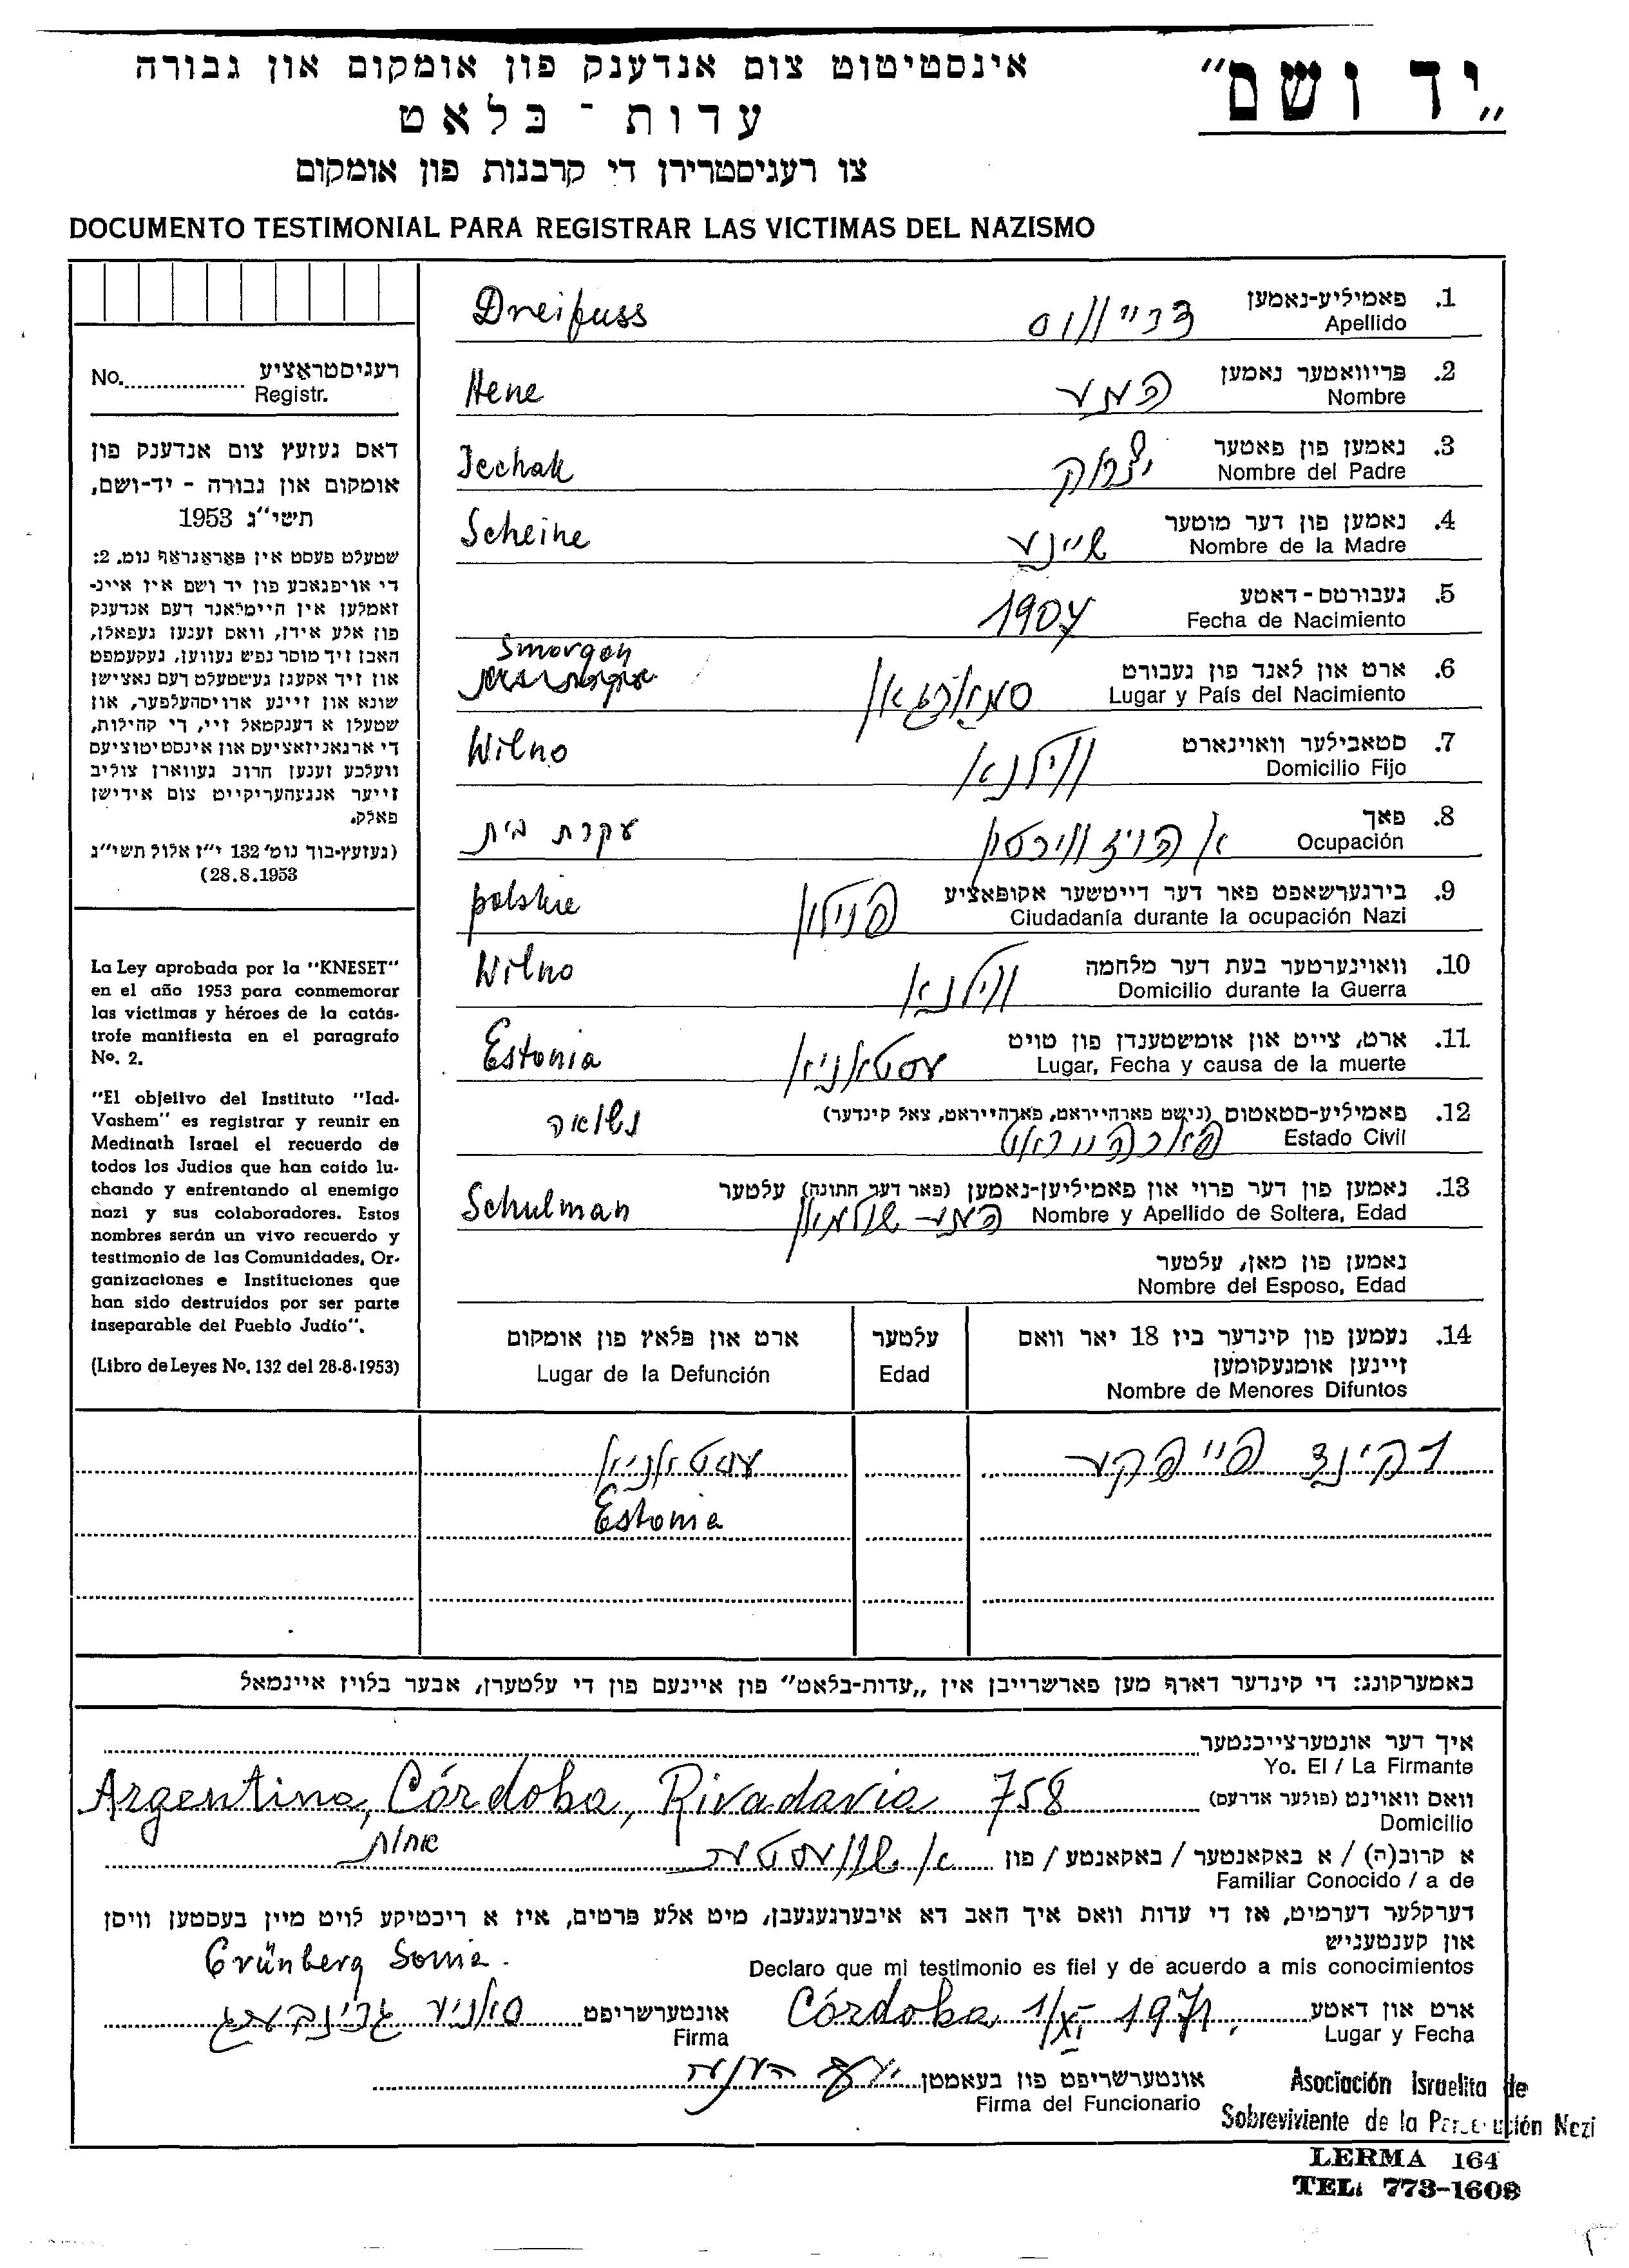 „יד ושם"
אינסטיטוט צום אנדענק פון אומקום און גבורה
עדות - בלאט
צו רעגיסטרירן די קרבנות פון אומקום
DOCUMENTO TESTIMONIAL PARA REGISTRAR LAS VICTIMAS DEL NAZISMO
רעגיסטראציע
No. Registr.
דאס געזעץ צום אנדענק פון
אומקום און גבורה - יד-ושם,
תשי"ג 1953
שטעלט פעסט אין פאראגראף נומ. 2:
די אויפגאבע פון יד ושם איז איינ-
זאמלען אין היימלאנד דעם אנדענק
פון אלע אידן, וואס זענען געפאלן,
האבן זיך מוסר נפש געווען, געקעמפט
און זיך אקעגן געשטעלט דעם נאצישן
שונא און זיינע ארויסהעלפער, און
שטעלן א דענקמאל זיי, די קהילות,
די ארגאניזאציעס און אינסטיטוציעס
וועלכע זענען חרוב געווארן צוליב
זייער אנגעהעריקייט צום אידישן
פאלק.
(געזעץ-בוך נומ' 132 י"ז אלול תשי"ג
28.8.1953)
La Ley aprobada por la "KNESET"
en el año 1953 para conmemorar
las victimas y héroes de la catás-
trofe manifiesta en el paragrafo
No. 2.
"El objetivo del Instituto "Iad-
Vashem" es registrar y reunir en
Medinath Israel el recuerdo de
todos los Judios que han caido lu-
chando y enfrentando al enemigo
nazi y sus colaboradores. Estos
nombres serán un vivo recuerdo y
testimonio de las Comunidades, Or-
ganizaciones e Instituciones que
han sido destruidos por ser parte
inseparable del Pueblo Judío".
(Libro de Leyes No. 132 del 28.8.1953)
1. פאמיליע-נאמען
Apellido
דרייפוס Dreifuss
2. פריוואטער נאמען
Nombre
הענע Hene
3. נאמען פון פאטער
Nombre del Padre
יצחק Icchak
4. נאמען פון דער מוטער
Nombre de la Madre
שיינע Scheine
5. געבורטס-דאטע
Fecha de Nacimiento
1904
6. ארט און לאנד פון געבורט
Lugar y País del Nacimiento
סמארגאן Smorgon
7. סטאבילער וואוינארט
Domicilio Fijo
ווילנא Wilno
8. פאך
Ocupación
א הויזווירטין עקרת בית
9. בירגערשאפט פאר דער דייטשער אקופאציע
Ciudadanía durante la ocupación Nazi
פוילן polskie
10. וואוינערטער בעת דער מלחמה
Domicilio durante la Guerra
ווילנא Wilno
11. ארט, צייט און אומשטענדן פון טויט
Lugar, Fecha y causa de la muerte
עסטאניא Estonia
12. פאמיליע-סטאטוס (נישט פארהייראט, פארהייראט, צאל קינדער)
Estado Civil
פארהייראט נשואה
13. נאמען פון דער פרוי און פאמיליען-נאמען (פאר דער חתונה) עלטער
Nombre y Apellido de Soltera, Edad
הענע שולמאן Schulman
נאמען פון מאן, עלטער
Nombre del Esposo, Edad
14. נעמען פון קינדער ביז 18 יאר וואס
זיינען אומגעקומען
Nombre de Menores Difuntos
עלטער
Edad
ארט און פלאץ פון אומקום
Lugar de la Defunción
עסטאניא
Estonia
באמערקונג: די קינדער דארף מען פארשרייבן אין „עדות-בלאט" פון איינעם פון די עלטערן, אבער בלויז איינמאל
איך דער אונטערצייכנטער
Yo. El / La Firmante
וואס וואוינט (פולער אדרעס)
Argentina, Córdoba, Rivadavia 758
Domicilio
אחות
א קרוב(ה) / א באקאנטער / באקאנטע / פון א שוועסטער
Familiar Conocido / a de
דערקלער דערמיט, אז די עדות וואס איך האב דא איבערגעגעבן, מיט אלע פרטים, איז א ריכטיקע לויט מיין בעסטען וויסן
און קענטעניש
Declaro que mi testimonio es fiel y de acuerdo a mis conocimientos
Grünberg Sonia.
ארט און דאטע Córdoba 1/XI. 1971.
Lugar y Fecha
אונטערשריפט סאניע גרינבערג
Firma
אונטערשריפט פון באאמטן
Firma del Funcionario
Asociación Israelita de
Sobreviviente de la Persecución Nazi
LERMA 164
TEL: 773-1608